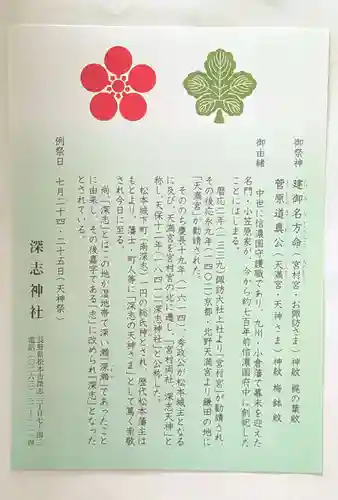 御祭神 建御名方命(宮村宮・お諏訪さま)神紋 梶の葉紋
菅原道真公(天満宮・天神さま)神紋 梅鉢紋
御由緒
中世に信濃国守護職であり、九州・小倉藩で幕末を迎えた
名門・小笠原家が、今から約七百年前信濃国府中に創祀した
ことにはじまる。
暦応二年(一三三九)諏訪大社上社より「宮村宮」が勧請され、
その後応永九年(一四〇二)京都・北野天満宮より鎌田の地に
「天満宮」が勧請された。
そののち慶長十九年(一六一四)、秀政公が松本城主となる
に及び、天満宮を宮村宮の北に遷し、「宮村両社・深志天神」と
称し、天保十二年(一八四一)「深志神社」と公称した。
松本城下町(南深志)一円の総氏神とされ、歴代松本藩主は
もとより、藩士・町人等に「深志の天神さま」として篤く崇敬
され今日に至る。
尚、「深志」とはこの地が湿地帯で深い瀬「深瀬」であったこと
に由来し、その後嘉字である「志」に改められ「深志」となった
とされている。
例祭日 七月二十四・二十五日(天神祭)
深志神社
長野県松本市深志三丁目七-四三
電話(〇二六三)三二-一二一四